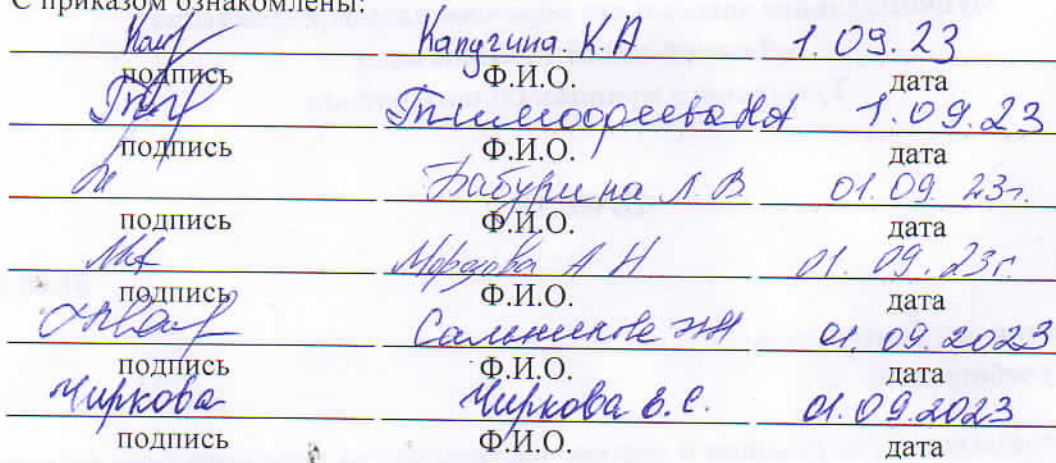 С приказом ознакомлены:
Капугина К.А 1.09.23
подпись Ф.И.О. дата
Тимофеева НА 1.09.23
подпись Ф.И.О. дата
Бабурина Л.В. 01.09.23г.
подпись Ф.И.О. дата
А Н 01.09.23г.
подпись Ф.И.О. дата
Сальникова 01.09.2023
подпись Ф.И.О. дата
Чиркова Чиркова Е.С. 01.09.2023
подпись Ф.И.О. дата